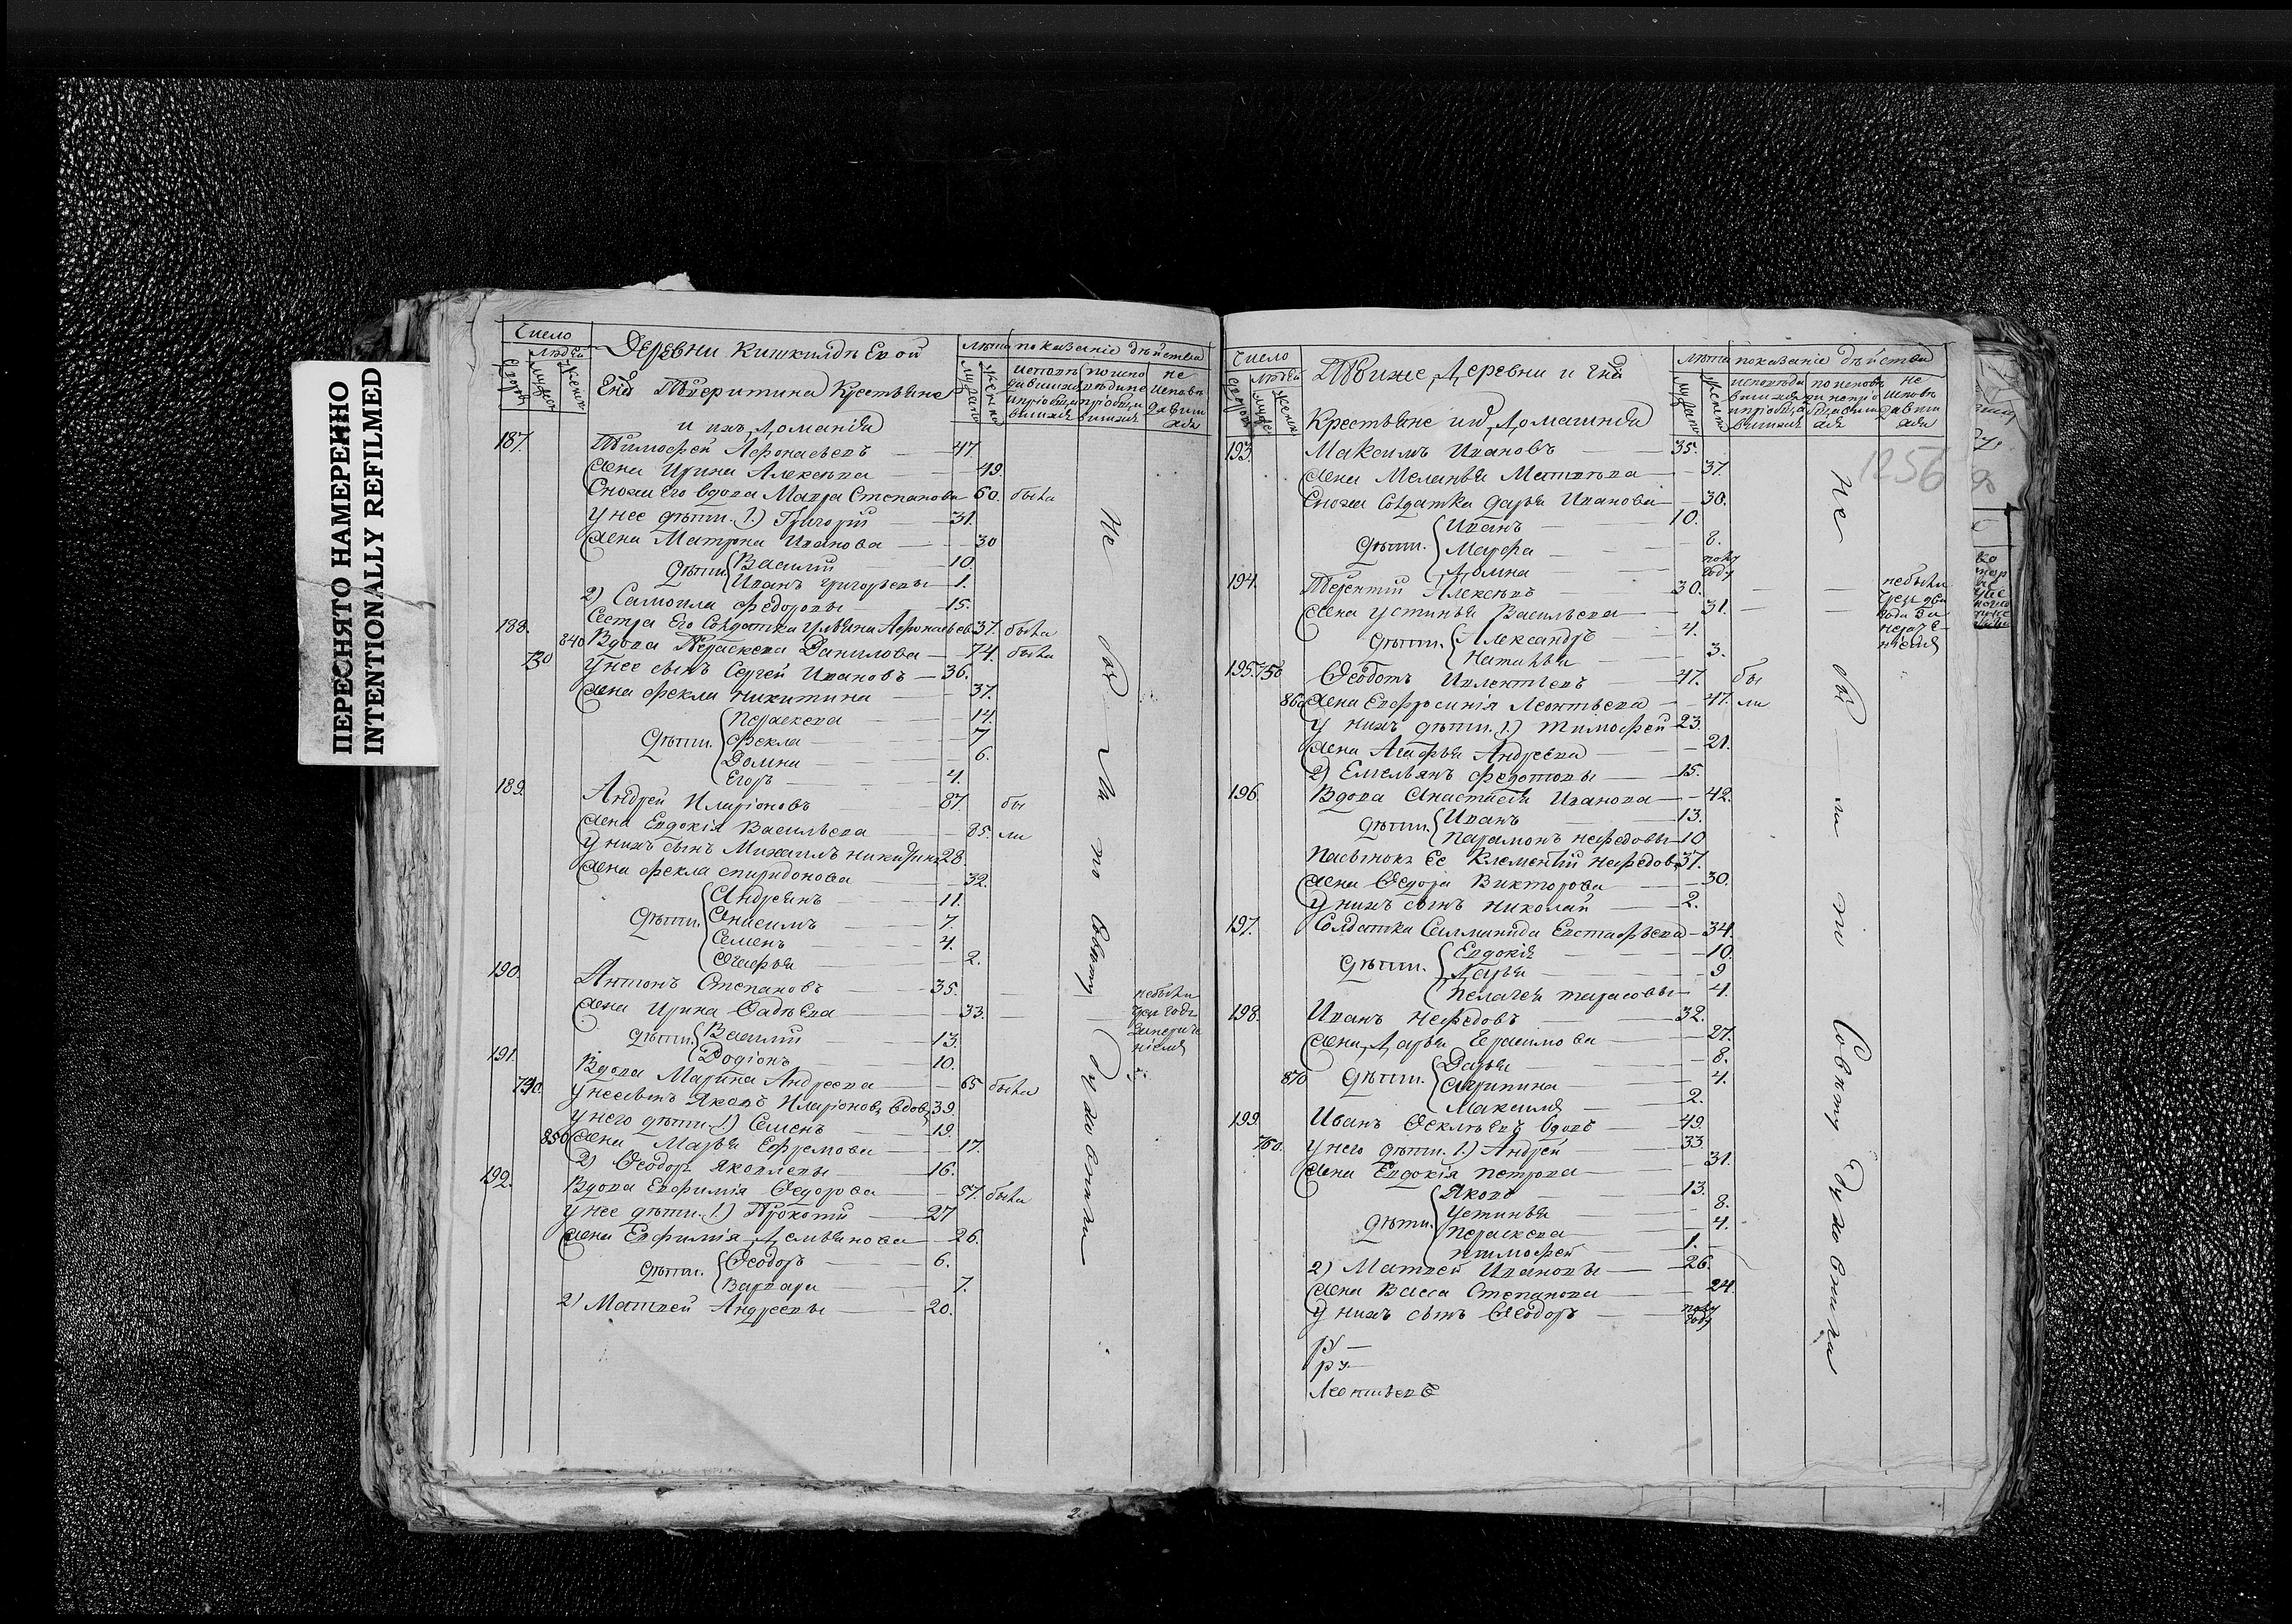 ПЕРЕСНЯТО НАМЕРЕННО
INTENTIONALLY REFILMED
Число
Людей
Деревни
Лѣта
показаніе дѣйства
Крестьяне
и ихъ Домашнія
187. Тимофей Афонасьевъ — 47.
Жена Ирина Алексѣева — 49.
Сноха Его вдова Мавра Степанова — 60. была
У нее дѣти. 1.) Григорій — 31.
Жена Матрона Иванова — 30
дѣти. Василий — 10.
Иванъ Григорьевы — 1.
2) Самоила Федоровы — 15.
Сестра Его Солдатка Ульяна Афонасьева 37. была
188. 840 Вдова Параскева Данилова — 74. была
730 У нее сынъ Сергей Ивановъ — 36.
Жена Фекла Никитина — 37.
дѣти. Параскева — 14.
Фекла — 7
Домна — 6.
Егоръ — 4.
189. Андрей Иларіоновъ — 87. бы
Жена Евдокія Васильева — 85. ли
У нихъ сынъ Михаилъ 28.
Жена Фекла Спиридонова — 32.
дѣти. Андреянъ — 11.
Онисимъ — 7.
Семенъ — 4.
Агафья — 2.
190. Антонъ Степановъ — 35.
Жена Ирина Фадѣева — 33.
дѣти. Василий — 13.
Родіонъ — 10.
191. Вдова Марина Андреева — 65 была
740. У нее сынъ Яковъ Иларіоновъ вдовъ 39.
У него дѣти 1) Семенъ — 19.
850 Жена Марья Ефремова — 17.
2) Феодоръ Яковлевы — 16.
192. Вдова Евфимія Федорова — 57. была
У нее дѣти. 1.) Прокопій — 27
Жена Евфимія Демьянова — 26.
дѣти. Феодоръ — 6.
Варвара — 7.
2) Матвей Андреевы — 20.
Не бы ли по Совѣту Духовника
Число
Людей
Тойже Деревни
Лѣта
показаніе дѣйства
Крестьяне и их Домашнія
1256
193. Максимъ Ивановъ — 35.
Жена Меланья Матвѣева — 37.
Сноха Солдатка Дарья Иванова — 30.
дѣти. Иванъ — 10.
Марфа — 8.
Домна — полу году
194. Терентій Алексѣевъ — 30.
Жена Устинья Васильева — 31.
дѣти. Александръ — 4.
Наталья — 3.
195. 750 Феодотъ — 47. бы
860 Жена Евфросинія Леонтьева — 47. ли
У нихъ дѣти. 1.) Тимофей 23.
Жена Агафья Андреева — 21.
2) Емельянъ Федотовы — 15.
196. Вдова Анастасія Иванова — 42.
дѣти. Иванъ — 13.
Парамонъ Нефедовы — 10
Пасынокъ Ее Клементій Нефедовъ 37.
Жена Федора Викторова — 30.
У нихъ сынъ Николай — 2.
197. Солдатка Саламанида Евстафьева — 34.
дѣти. Евдокія — 10.
Дарья — 9
Пелагея Тарасовы — 4.
198. Иванъ Нефедовъ — 32.
Жена Дарья Герасимова — 27.
дѣти. Дарья — 8.
870 Агрипина — 4.
Максимъ — 2.
199. Иванъ вдовъ — 49.
760. У него дѣти. 1.) Андрей — 33
Жена Евдокія Петрова — 31.
дѣти. Яковъ — 13.
Устинья — 8.
Параскева — 4.
Тимофей — 1.
2) Матвей Ивановы — 26.
Жена Васса Степанова — 24.
У нихъ сынъ Феодоръ — полу году
Леонтьевъ
Не бы ли по Совѣту Духовника